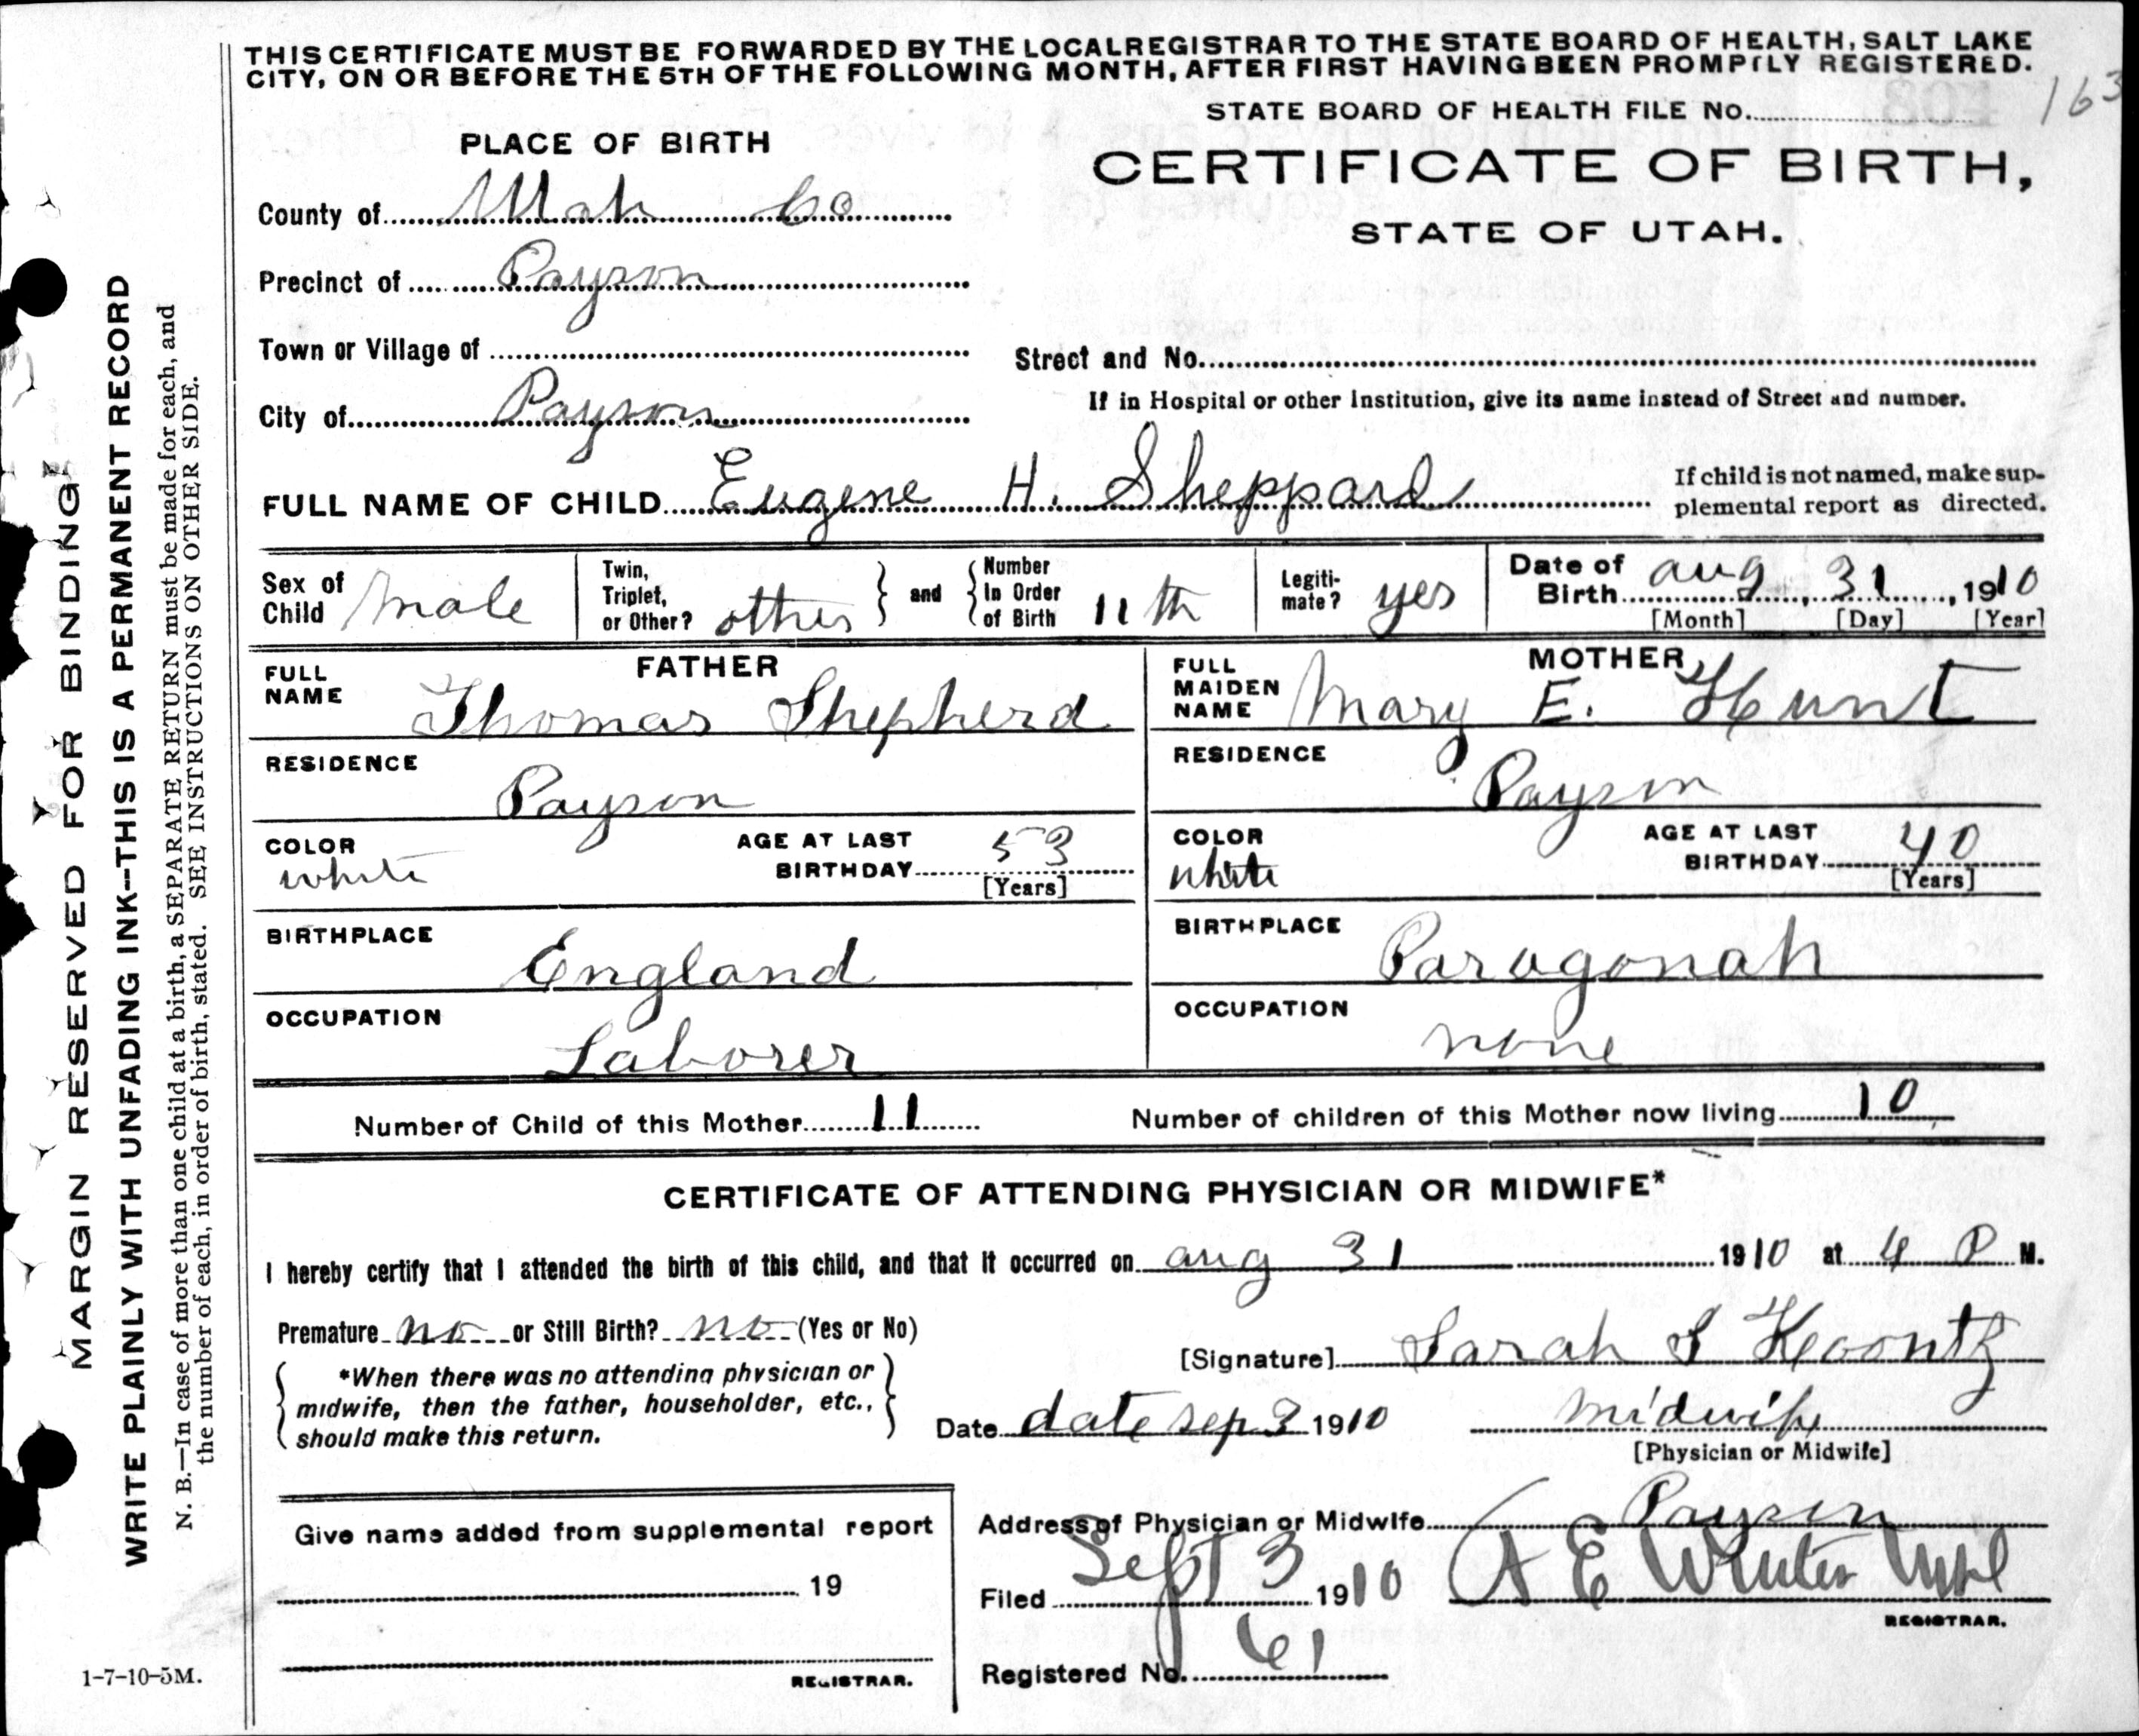 THIS CERTIFICATE MUST BE FORWARDED BY THE LOCAL REGISTRAR TO THE STATE BOARD OF HEALTH, SALT LAKE
CITY, ON OR BEFORE THE 5TH OF THE FOLLOWING MONTH, AFTER FIRST HAVING BEEN PROMPTLY REGISTERED.
163
STATE BOARD OF HEALTH FILE No.
PLACE OF BIRTH
CERTIFICATE OF BIRTH,
STATE OF UTAH.
County of Utah Co
Precinct of Payson
Town or Village of
Street and No.
City of Payson
If in Hospital or other Institution, give its name instead of Street and number.
FULL NAME OF CHILD Eugene H. Sheppard
If child is not named, make sup-
plemental report as directed.
Sex of Child Male
Twin, Triplet, or Other? other
and
Number In Order of Birth 11th
Legiti-mate? yes
Date of Birth aug 31, 1910
[Month] [Day] [Year]
FATHER
FULL NAME Thomas Shepherd
RESIDENCE Payson
COLOR white
AGE AT LAST BIRTHDAY 53
[Years]
BIRTHPLACE England
OCCUPATION Laborer
MOTHER
FULL MAIDEN NAME Mary E. Hunt
RESIDENCE Payson
COLOR white
AGE AT LAST BIRTHDAY 40
[Years]
BIRTHPLACE Paragonah
OCCUPATION none
Number of Child of this Mother 11
Number of children of this Mother now living 10
CERTIFICATE OF ATTENDING PHYSICIAN OR MIDWIFE*
I hereby certify that I attended the birth of this child, and that it occurred on aug 31 1910 at 4 P M.
Premature no or Still Birth? no (Yes or No)
[Signature] Sarah S Koontz
*When there was no attending physician or
midwife, then the father, householder, etc.,
should make this return.
Date date sep 3 1910
midwife
[Physician or Midwife]
Address of Physician or Midwife Payson
Give name added from supplemental report
19
REGISTRAR.
Filed Sept 3 1910
A E Winter
REGISTRAR.
Registered No. 61
1-7-10-5M.
MARGIN RESERVED FOR BINDING
WRITE PLAINLY WITH UNFADING INK—THIS IS A PERMANENT RECORD
N. B.—In case of more than one child at a birth, a SEPARATE RETURN must be made for each, and
the number of each, in order of birth, stated. SEE INSTRUCTIONS ON OTHER SIDE.